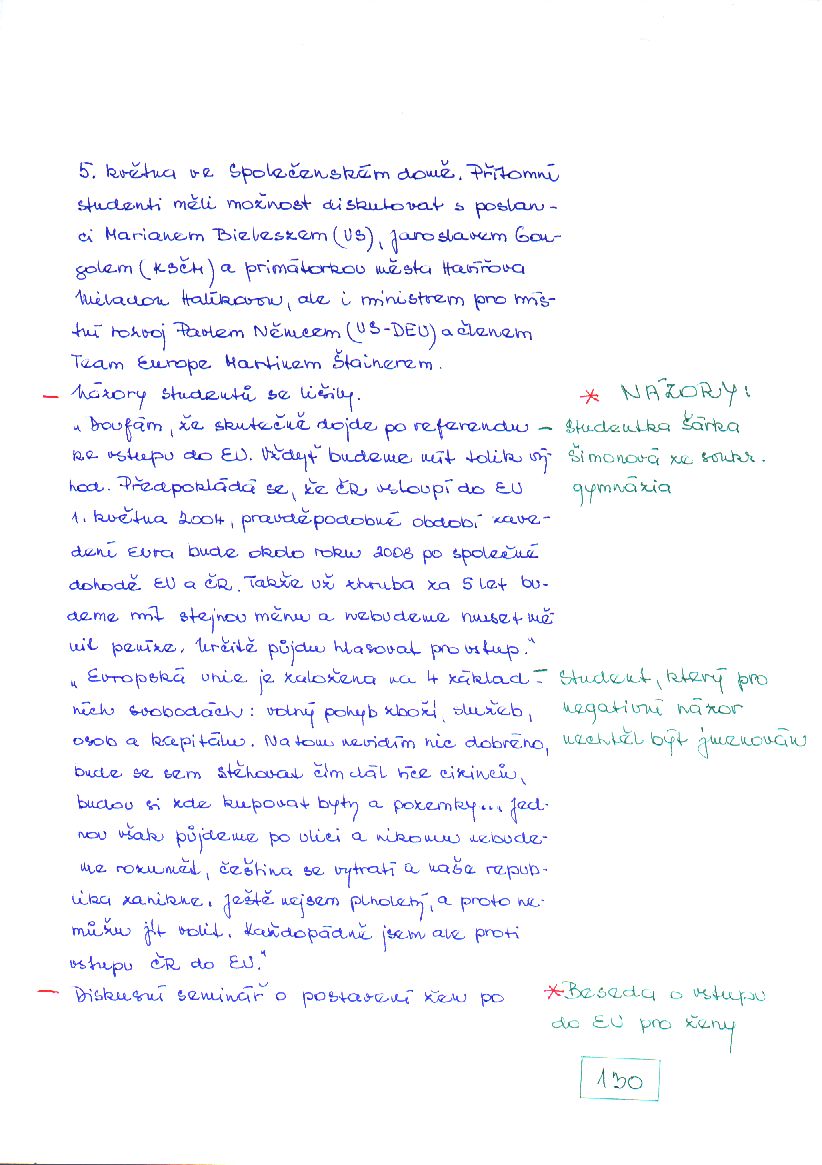 5. května ve Společenském domě. Přítomní
studenti měli možnost diskutovat s poslan-
ci Marianem Bieleszem (US), Jaroslavem Gon-
golem (KSČM) a primátorkou města Havířova
Miladou Halíkovou, ale i ministrem pro míst-
tní rozvoj Pavlem Němcem (US-DEU) a členem
Team Europe Martinem Štainerem.
– Názory studentů se lišily.
* NÁZORY:
„Doufám, že skutečně dojde po referendu
– studentka Šárka
ke vstupu do EU. Vždyť budeme mít tolik vý-
Šimonová ze soukr.
hod. Předpokládá se, že ČR vstoupí do EU
gymnázia
1. května 2004, pravděpodobné období zave-
dení Eura bude okolo roku 2008 po společné
dohodě EU a ČR. Takže už zhruba za 5 let bu-
deme mít stejnou měnu a nebudeme muset mě-
nit peníze. Určitě půjdu hlasovat pro vstup."
„Evropská unie je založena na 4 základ-
– student, který pro
ních svobodách: volný pohyb zboží, služeb,
negativní názor
osob a kapitálu. Na tom nevidím nic dobrého,
nechtěl být jmenován
bude se sem stěhovat čím dál více cizinců,
budou si zde kupovat byty a pozemky... Jed-
nou však půjdeme po ulici a nikomu nebude-
me rozumět, čeština se vytratí a naše repub-
lika zanikne. Ještě nejsem plnoletý, a proto ne-
můžu jít volit. Každopádně jsem ale proti
vstupu ČR do EU."
– Diskusní seminář o postavení žen po
* Beseda o vstupu
do EU pro ženy
130